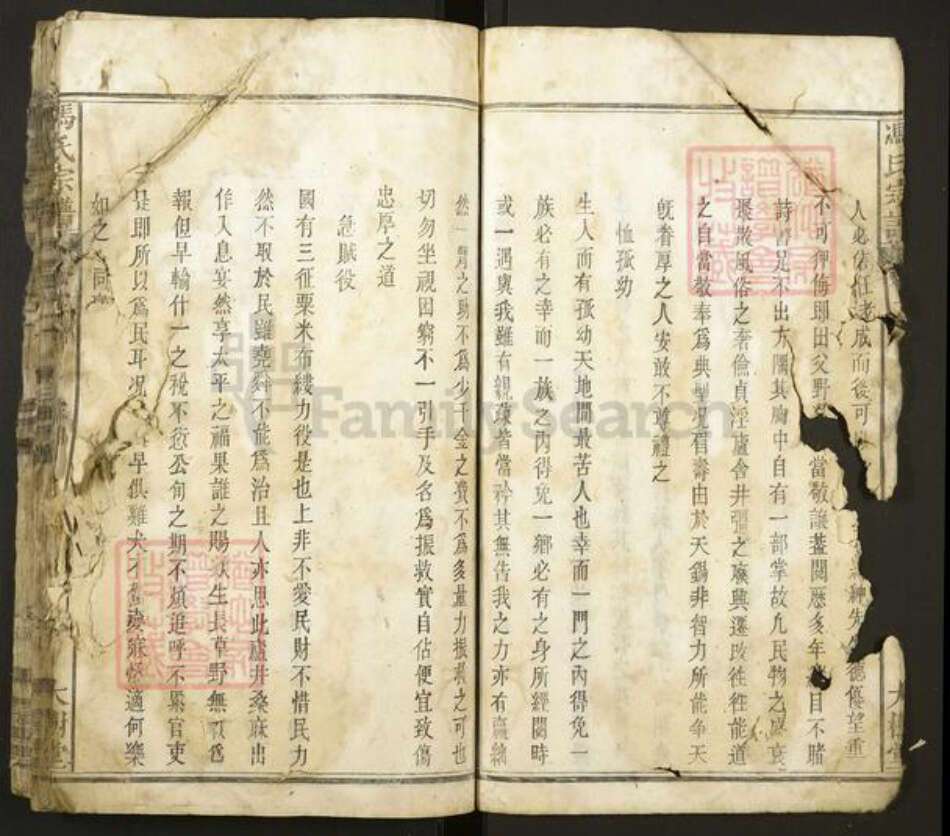 馮氏宗譜
大樹堂
人必信任老成而後可
紳先 德優望重
不可狎侮即田父野 當敬讓蓋閱歷多年 目不睹
詩書足不出方隅其胸中自有一部掌故凡民物之盛衰
聚散風俗之奢儉貞淫廬舍井疆之廢興遷改往往能道
之自當敬奉為典型況眉壽由於天錫非智力所能爭天
既眷厚之人安敢不尊禮之
恤孤幼
生人而有孤幼天地間最苦人也幸而一門之內得免一
族必有之幸而一族之內得免一鄉必有之身所經閱時
或一遇與我雖有親疎皆當矜其無告我之力亦有贏絀
然一 之助不為少千金之費不為多量力振救之可也
切勿坐視困窮不一引手及名為振救實自佔便宜致傷
忠厚之道
急賦役
國有三征粟米布縷力役是也上非不愛民財不惜民力
然不取於民雖堯舜不能為治且人亦思此廬井桑麻出
作入息宴然享太平之福果誰之賜 生長草野無 為
報但早輸什一之稅不愆公旬之期不煩追呼不累官吏
是即所以為民耳况 早俱雞犬不 夢寐 適何樂
如之 同
馮氏宗譜
大樹堂
FamilySearch